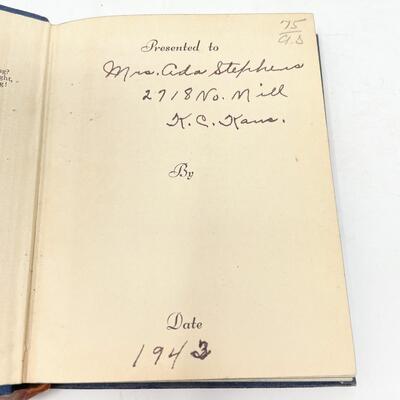 ng?
ght,
g!
75
Presented to
Mrs. Ada Stephens
2718 No. Mill
K.C. Kans.
By
Date
1943